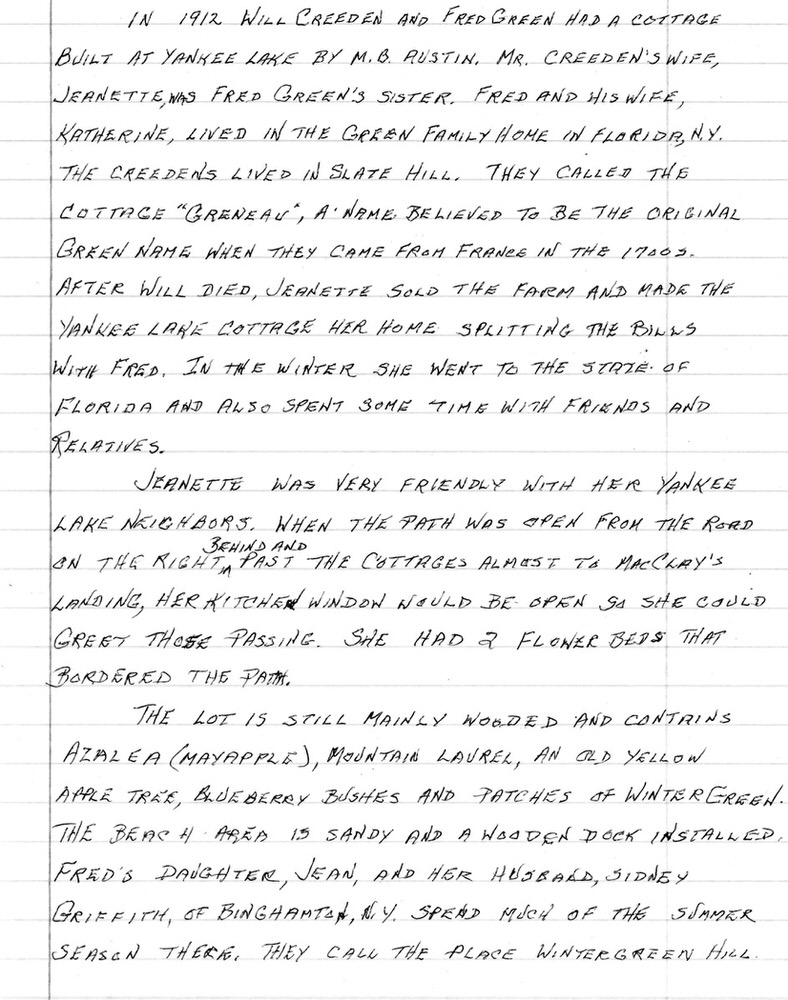 IN 1912 WILL CREEDEN AND FRED GREEN HAD A COTTAGE
BUILT AT YANKEE LAKE BY M.B. AUSTIN. MR. CREEDEN'S WIFE,
JEANETTE, WAS FRED GREEN'S SISTER. FRED AND HIS WIFE,
KATHERINE, LIVED IN THE GREEN FAMILY HOME IN FLORIDA, N.Y.
THE CREEDENS LIVED IN SLATE HILL. THEY CALLED THE
COTTAGE "GRENEAU", A NAME BELIEVED TO BE THE ORIGINAL
GREEN NAME WHEN THEY CAME FROM FRANCE IN THE 1700S.
AFTER WILL DIED, JEANETTE SOLD THE FARM AND MADE THE
YANKEE LAKE COTTAGE HER HOME SPLITTING THE BILLS
WITH FRED. IN THE WINTER SHE WENT TO THE STATE OF
FLORIDA AND ALSO SPENT SOME TIME WITH FRIENDS AND
RELATIVES.
JEANETTE WAS VERY FRIENDLY WITH HER YANKEE
LAKE NEIGHBORS. WHEN THE PATH WAS OPEN FROM THE ROAD
BEHIND AND
ON THE RIGHT PAST THE COTTAGES ALMOST TO MACCLAY'S
LANDING, HER KITCHEN WINDOW WOULD BE OPEN SO SHE COULD
GREET THOSE PASSING. SHE HAD 2 FLOWER BEDS THAT
BORDERED THE PATH.
THE LOT IS STILL MAINLY WOODED AND CONTAINS
AZALEA (MAYAPPLE), MOUNTAIN LAUREL, AN OLD YELLOW
APPLE TREE, BLUEBERRY BUSHES AND PATCHES OF WINTERGREEN.
THE BEACH AREA IS SANDY AND A WOODEN DOCK INSTALLED.
FRED'S DAUGHTER, JEAN, AND HER HUSBAND, SIDNEY
GRIFFITH, OF BINGHAMTON, N.Y. SPEND MUCH OF THE SUMMER
SEASON THERE. THEY CALL THE PLACE WINTERGREEN HILL.